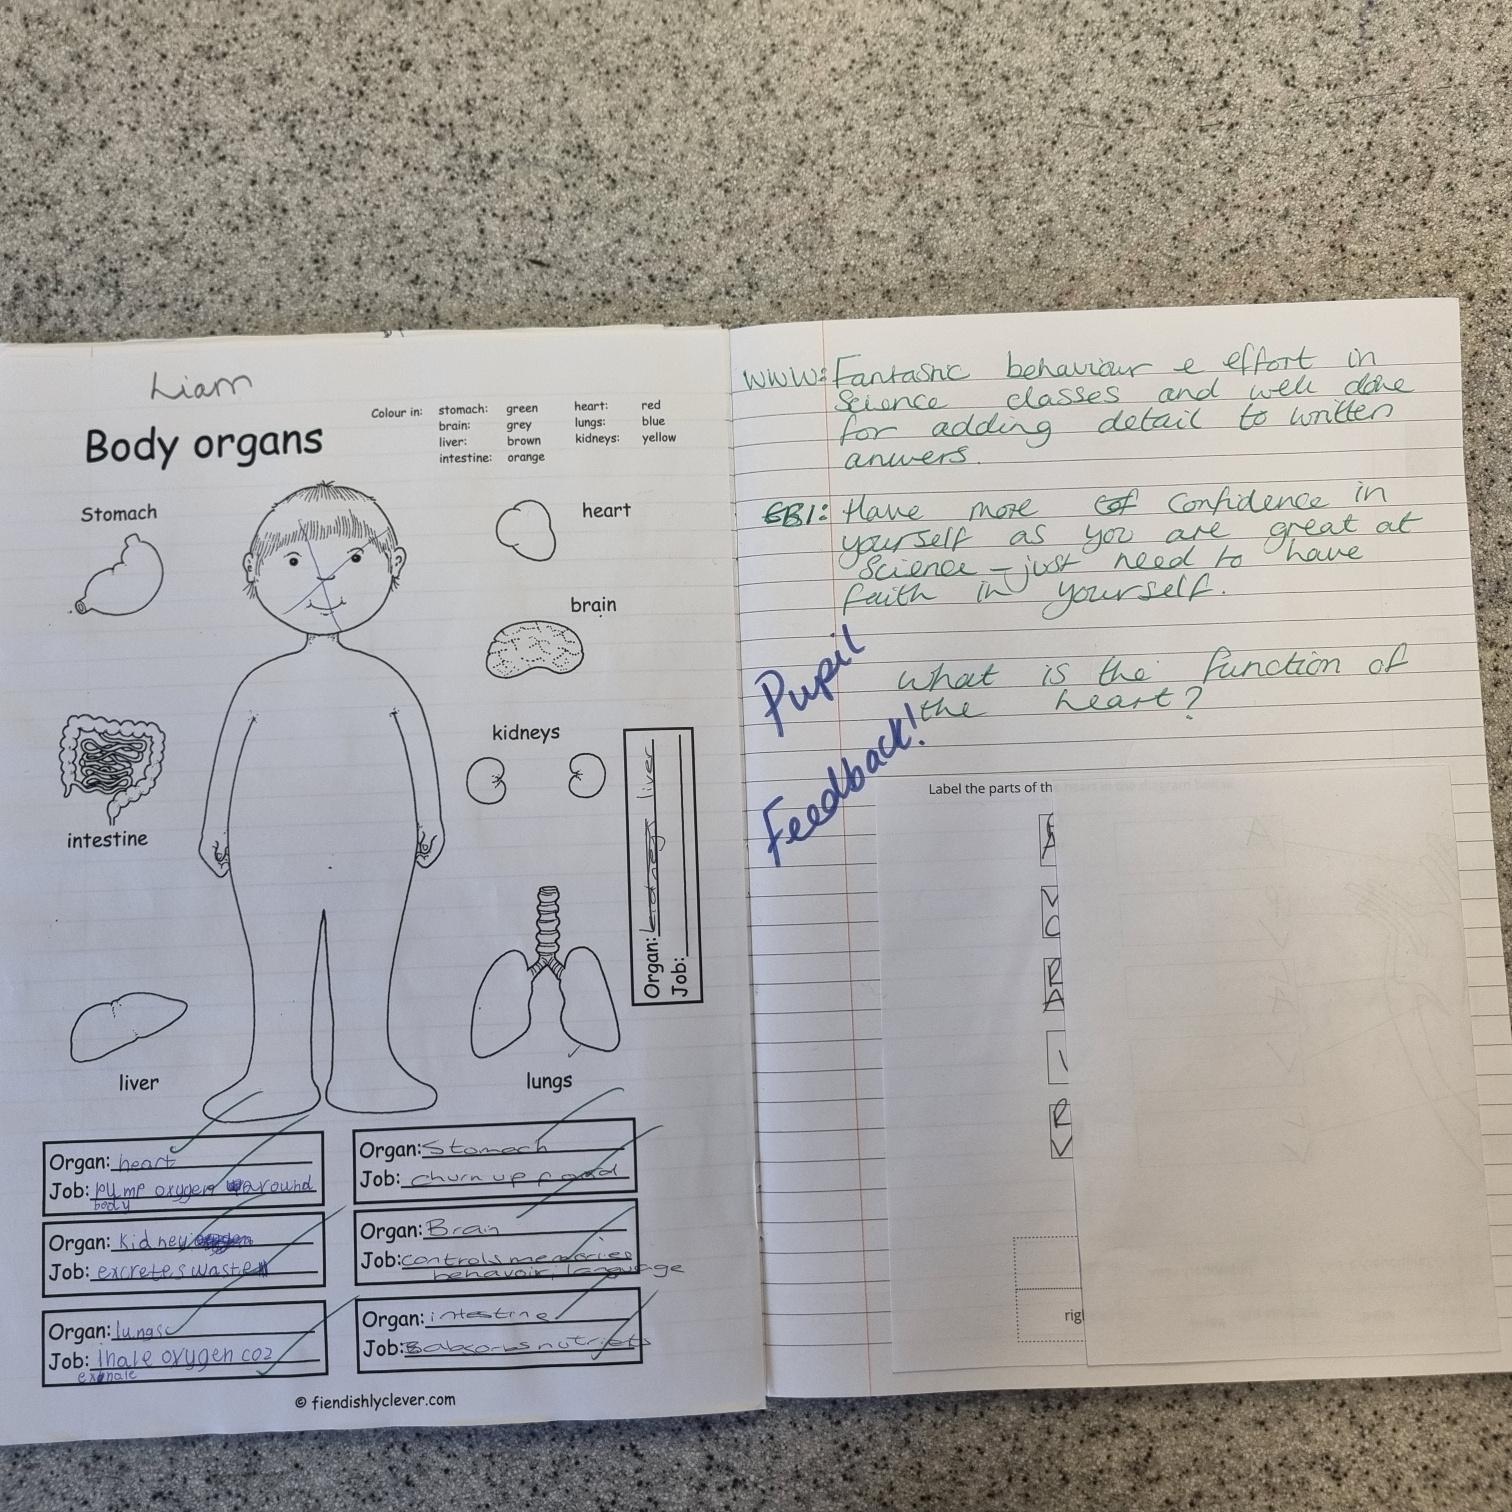 Liam
Body organs
Colour in:
stomach: green
brain: grey
liver: brown
intestine: orange
heart: red
lungs: blue
kidneys: yellow
Stomach
heart
brain
kidneys
intestine
liver
lungs
Organ: kidneys liver
Job:
Organ: heart
Job: pump oxygen around
body
Organ: Kidney
Job: excretes waste
Organ: lungs
Job: Inale oxygen co2
exhale
Organ: Stomach
Job: churn up food
Organ: Brain
Job: controls memories
behavoir, language
Organ: intestine
Job: absorbs nutriets
© fiendishlyclever.com
WWW: Fantastic behaviour e effort in
Science classes and well done
for adding detail to written
anwers.
EBI: Have more of confidence in
yourself as you are great at
Science - just need to have
faith in yourself.
Pupil
Feedback!
What is the function of
the heart?
Label the parts of th
A
V
C
R
A
R
V
rig